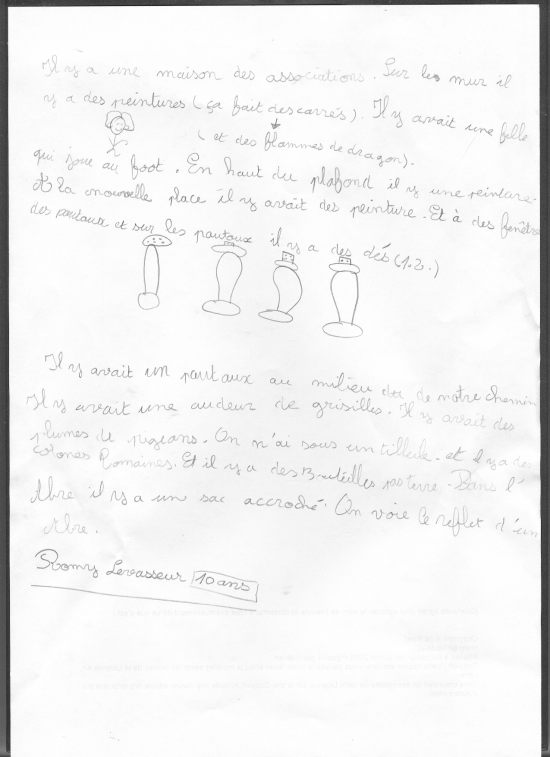 Il y a une maison des associations. Sur les mur il
y a des peintures (ça fait des carrés). Il y avait une fille
(et des flammes de dragon).
qui joue au foot. En haut du plafond il y une peinture
Et la nouvelle place il y avait des peinture. Et à des fenêtre
des pautaux et sur les pautaux il y a des dés (1.2.)
Il y avait un pautaux au milieu de notre chemin
Il y avait une audeur de grisilles. Il y avait des
plumes de pigeons. On n'ai sous un tillule. et il y a des
colones Romaines. Et il y a des Buteilles par terre. Dans l'
Abre il y a un sac accroché. On voie le reflet d'un
Abre.
Romy Levasseur 10 ans